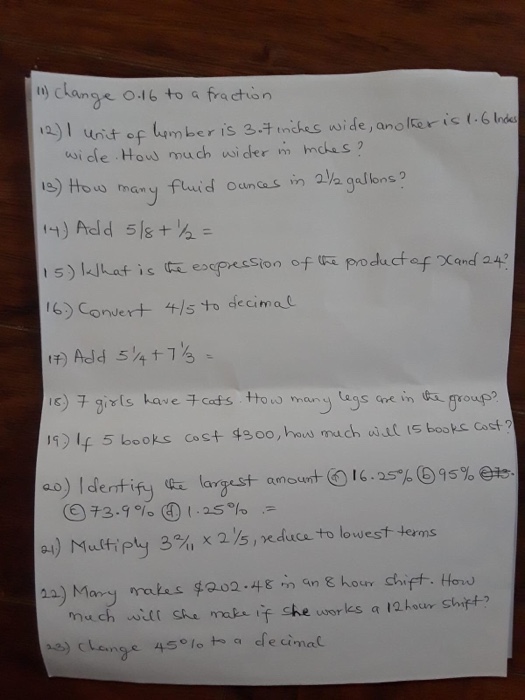 11) Change 0.16 to a fraction
12) 1 unit of lumber is 3.7 inches wide, another is 1.6 Inches
wide. How much wider in inches?
13) How many fluid ounces in 2 1/2 gallons?
14) Add 5/8 + 1/2 =
15) What is the expression of the product of X and 24?
16) Convert 4/5 to decimal
17) Add 5 1/4 + 7 1/3 =
18) 7 girls have 7 cats. How many legs are in the group?
19) If 5 books cost $300, how much will 15 books cost?
20) Identify the largest amount (a) 16.25% (b) 95%
(c) 73.9% (d) 1.25% .=
21) Multiply 3 2/11 x 2 1/5, reduce to lowest terms
22) Mary makes $202.48 in an 8 hour shift. How
much will she make if she works a 12 hour shift?
23) Change 45% to a decimal